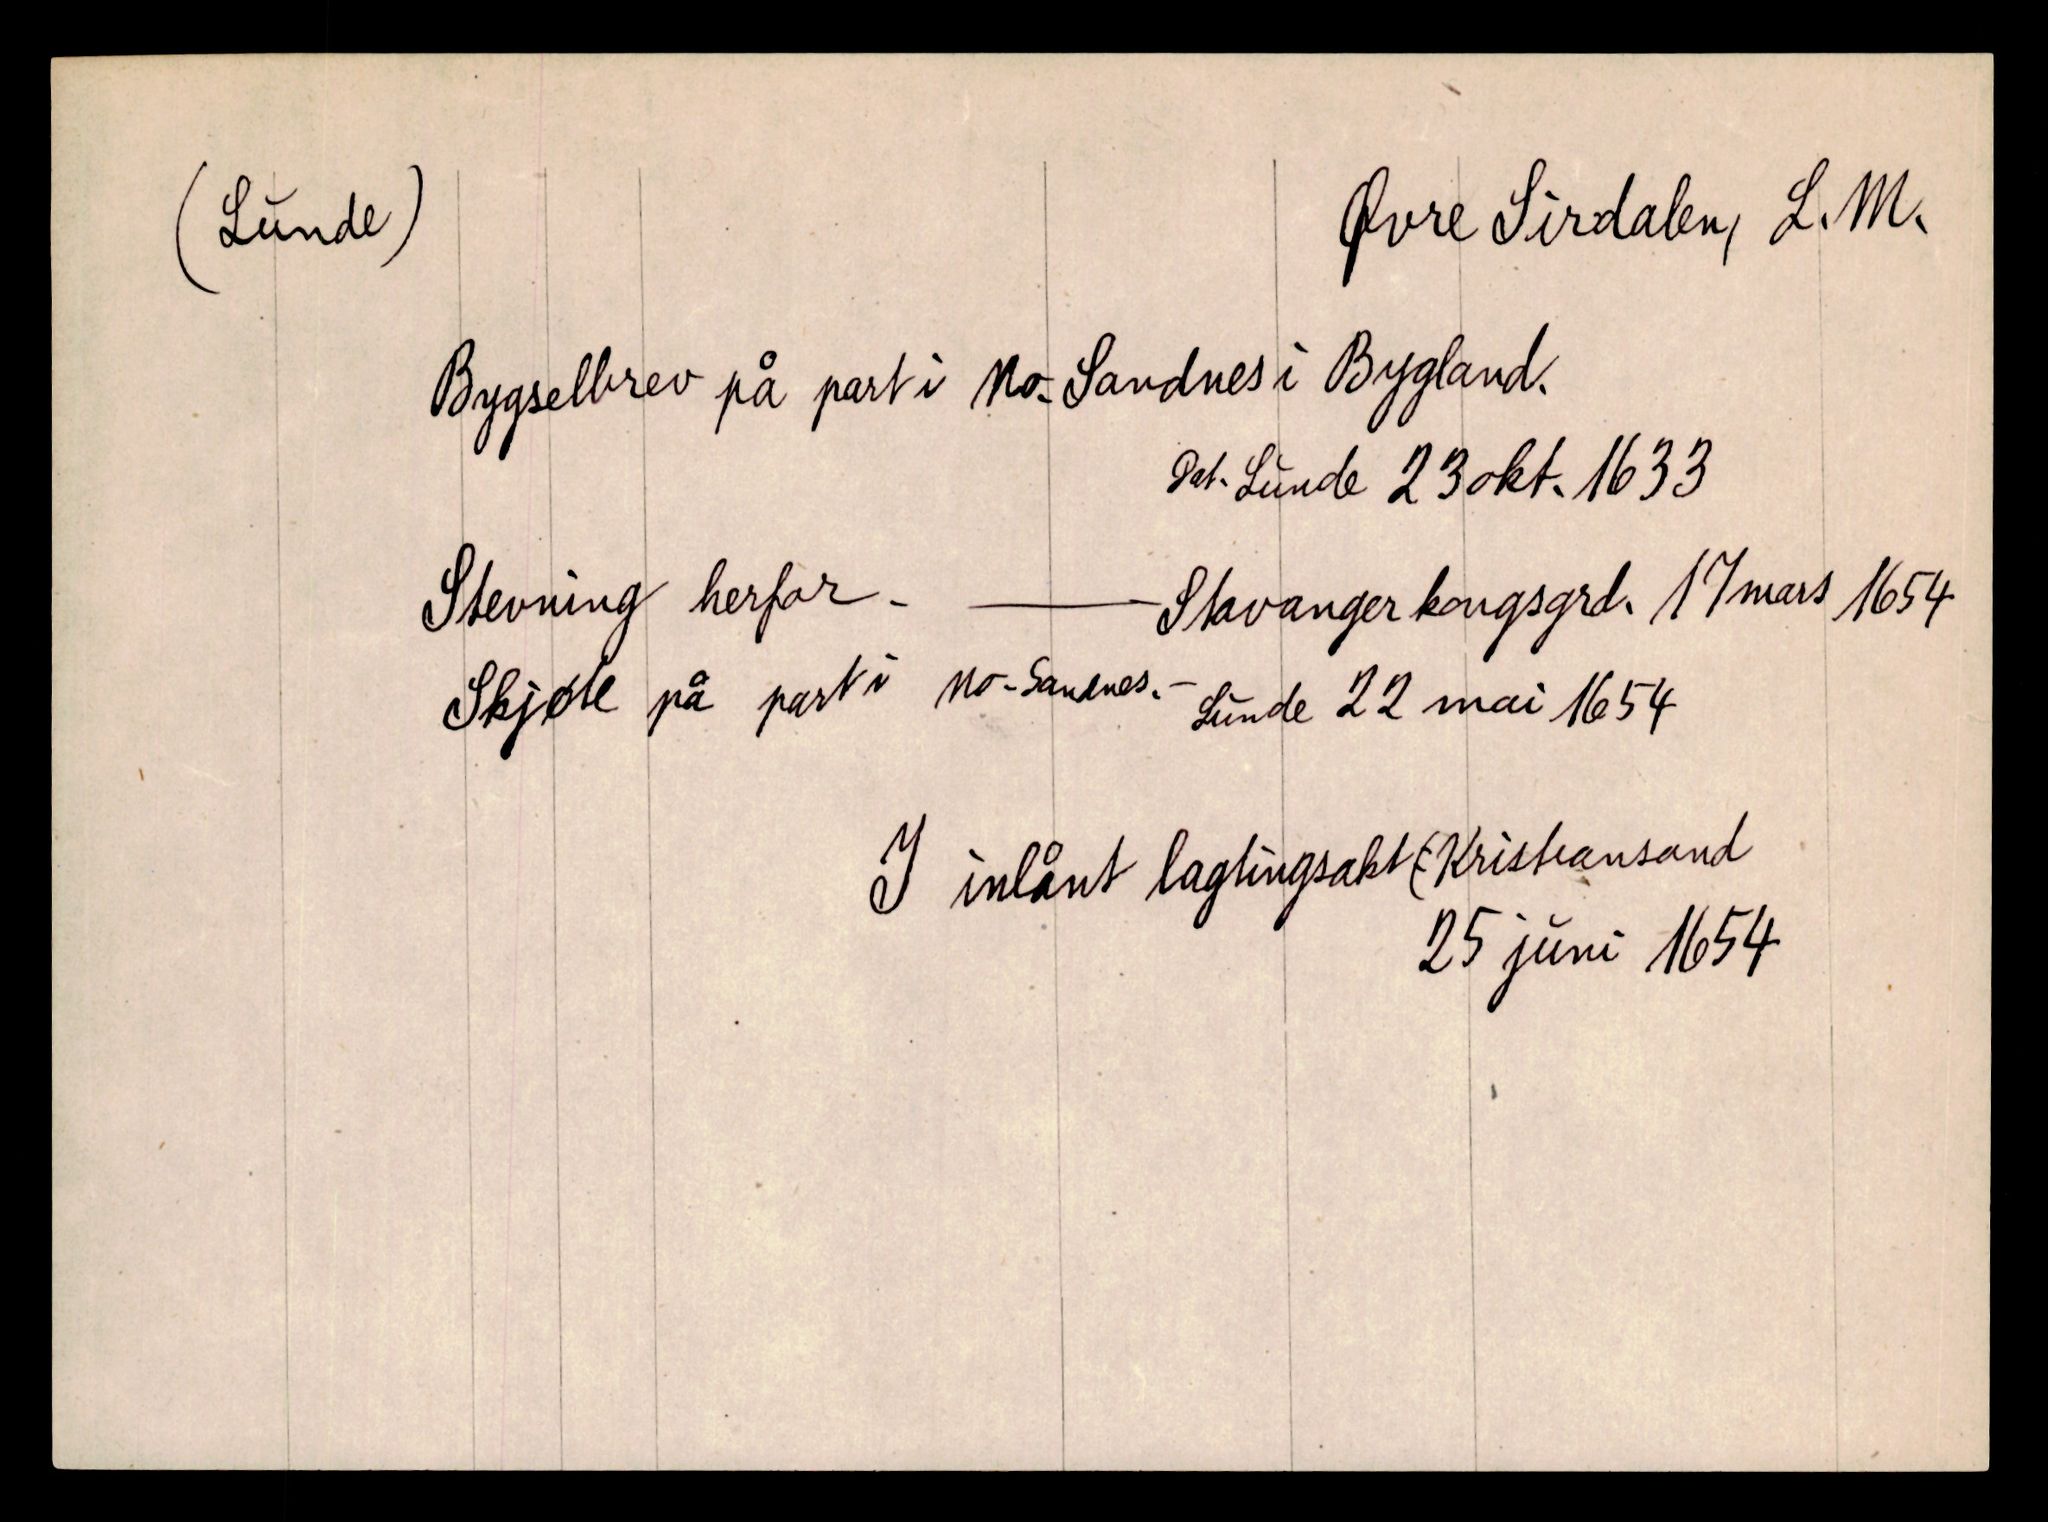 (Lunde) Øvre Sirdalen, L. M.
Bygselbrev på part i No-Sandnes i Bygland.
Dat. Lunde 23 okt. 1633
Stevning herfor - — Stavanger kongsgrd. 17 mars 1654
Skjøte på part i No-Sandnes. - Lunde 22 mai 1654
I inlånt lagtingsakt (Kristiansand
25 juni 1654